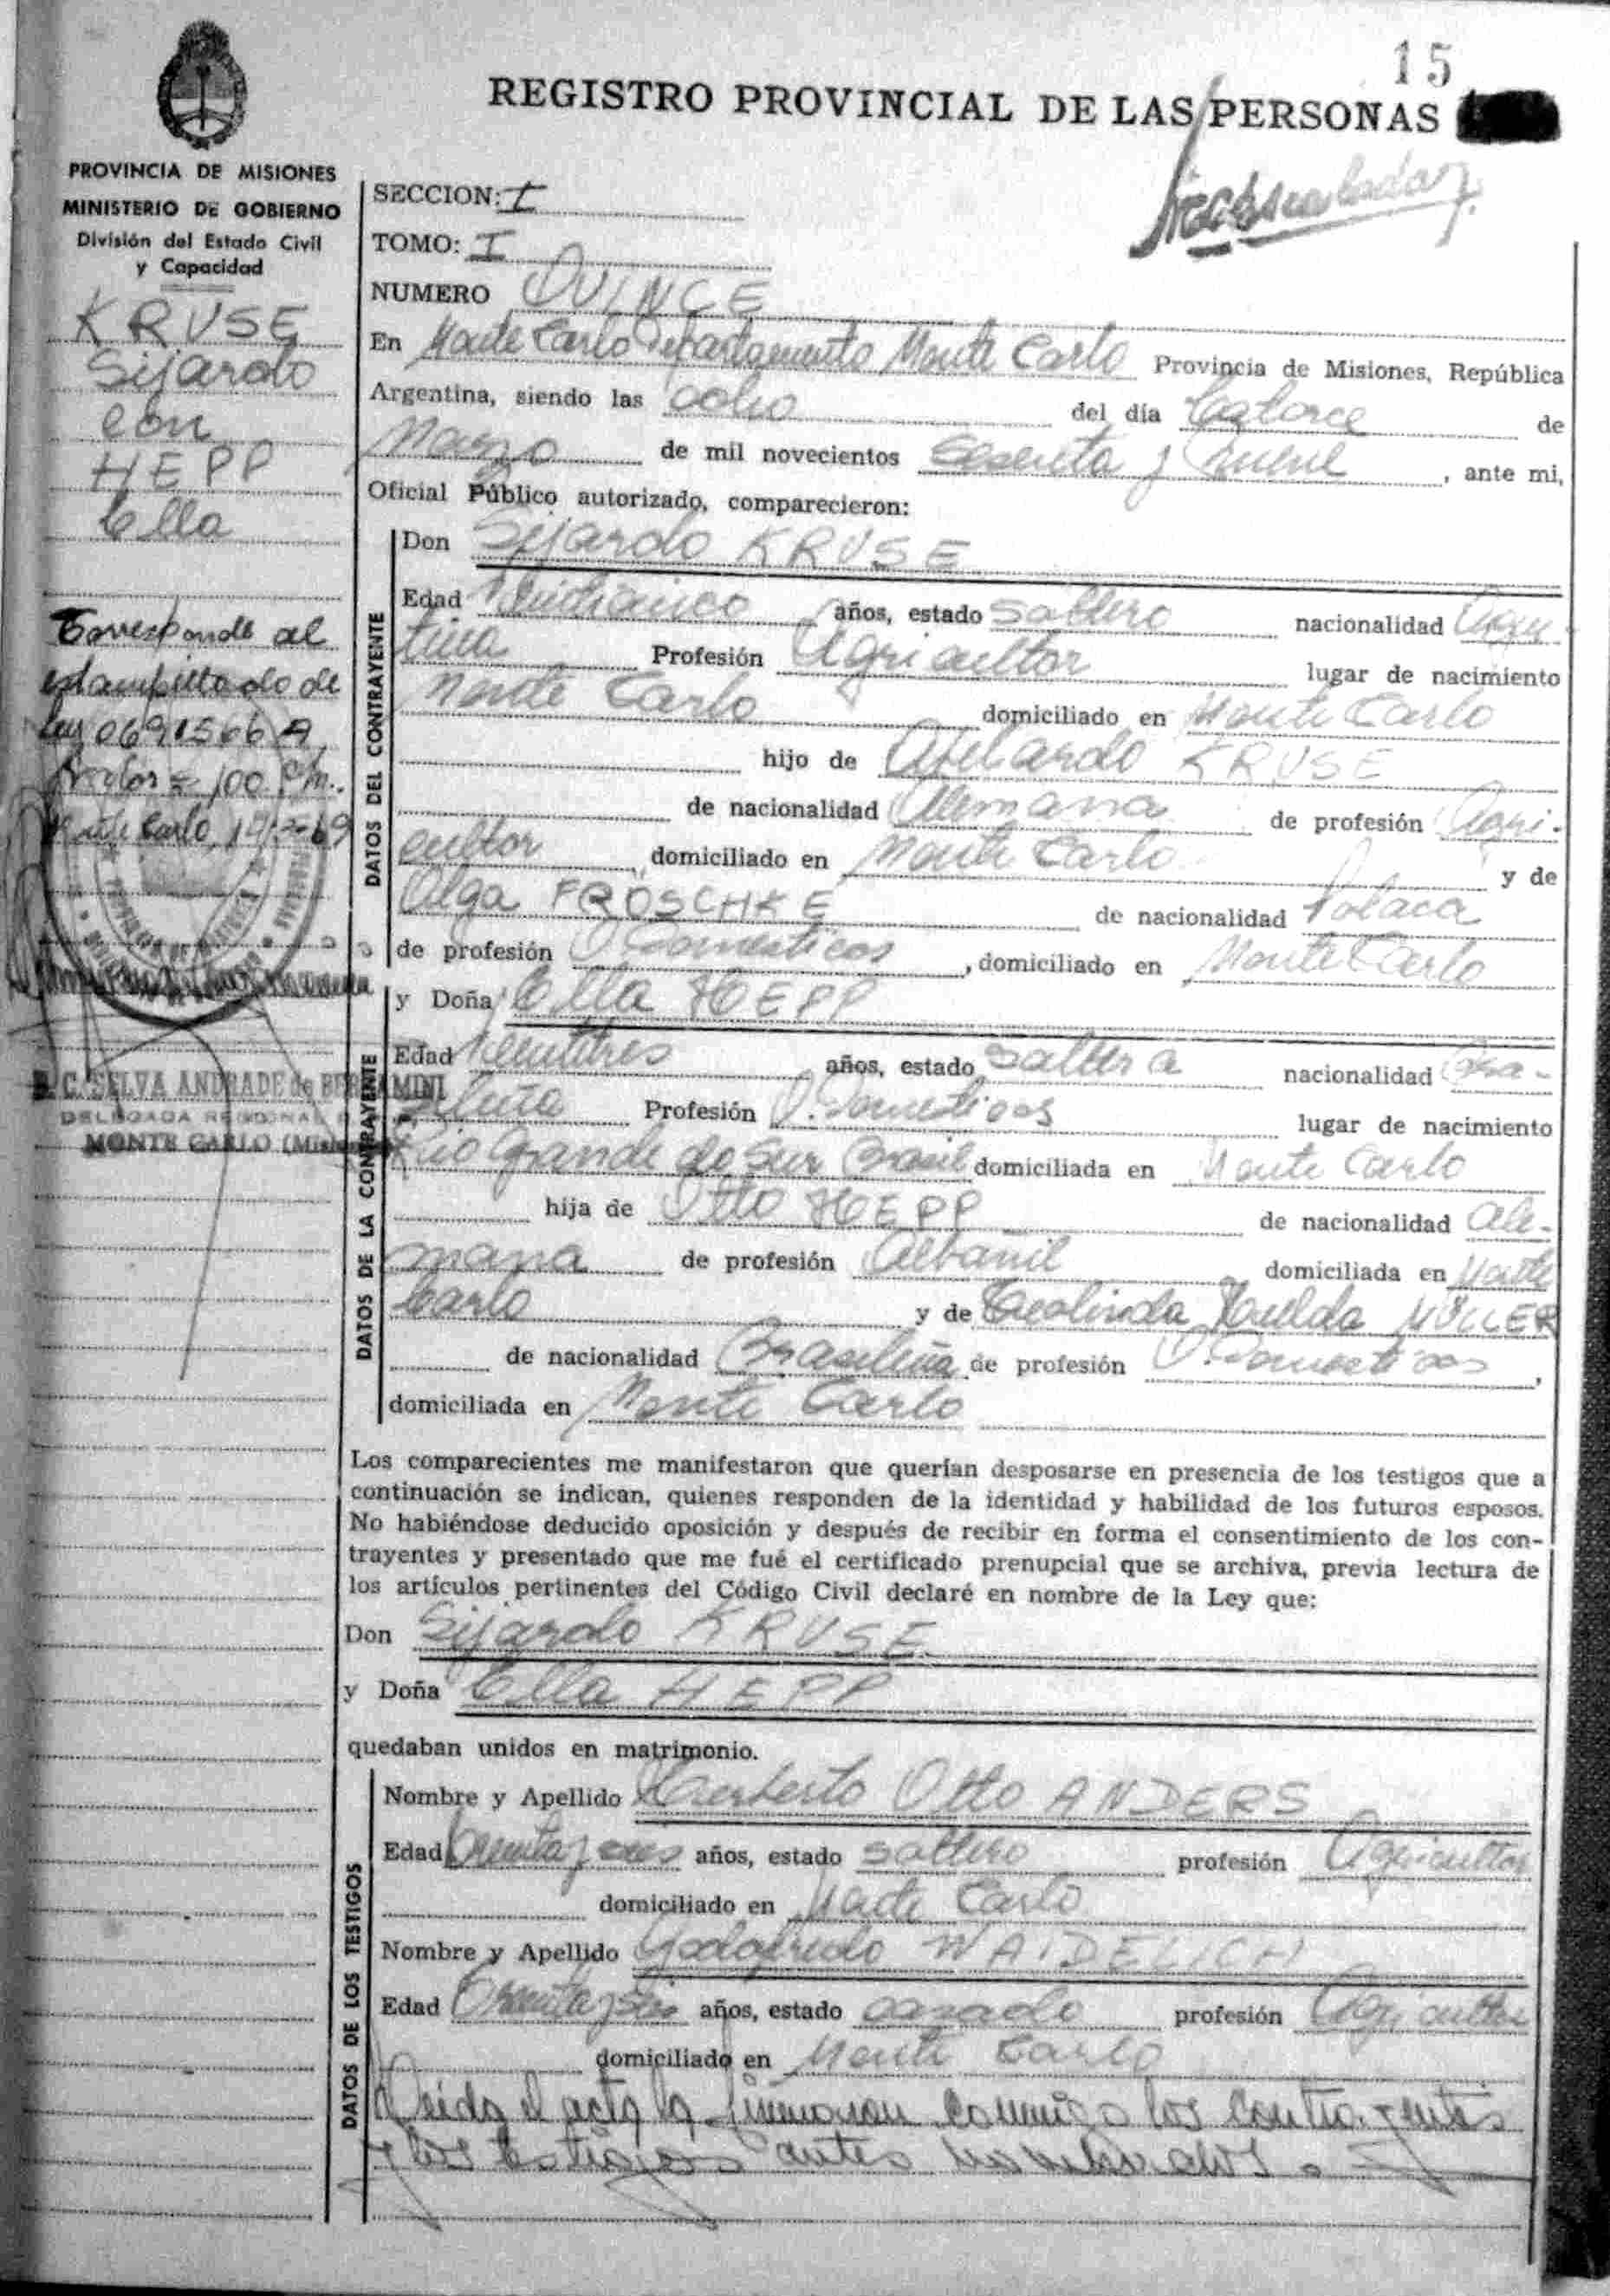 15
REGISTRO PROVINCIAL DE LAS PERSONAS
PROVINCIA DE MISIONES
MINISTERIO DE GOBIERNO
División del Estado Civil
y Capacidad
KRUSE
Sijardo
con
HEPP
Ella
Corresponde al
estampillado de
Ley 0691566 A
Valor = 100
Monte Carlo, 14-3-69
C. SELVA ANDRADE de BERGAMINI
DELEGADA REGIONAL
MONTE CARLO
SECCION: I
TOMO: I
NUMERO QUINCE
En Monte Carlo Departamento Monte Carlo Provincia de Misiones, República
Argentina, siendo las ocho del día Catorce de
Marzo de mil novecientos sesenta y nueve, ante mi,
Oficial Público autorizado, comparecieron:
DATOS DEL CONTRAYENTE
Don Sijardo KRUSE
Edad Veinticinco años, estado soltero nacionalidad Argen-
tina Profesión Agricultor lugar de nacimiento
Monte Carlo domiciliado en Monte Carlo
hijo de Abelardo KRUSE
de nacionalidad Alemana de profesión Agri-
cultor domiciliado en Monte Carlo y de
Olga FRÖSCHKE de nacionalidad Polaca
de profesión Q. Domesticos, domiciliado en Monte Carlo
DATOS DE LA CONTRAYENTE
y Doña Ella HEPP
Edad Veintitres años, estado soltera nacionalidad Bra-
sileña Profesión Q. Domesticos lugar de nacimiento
Rio Grande do Sur Brasil domiciliada en Monte Carlo
hija de Otto HEPP de nacionalidad Ale-
mana de profesión Albanil domiciliada en Monte
Carlo y de Teolinda Hulda MÜLLER
de nacionalidad Brasileña de profesión Q. Domesticos,
domiciliada en Monte Carlo
Los comparecientes me manifestaron que querían desposarse en presencia de los testigos que a
continuación se indican, quienes responden de la identidad y habilidad de los futuros esposos.
No habiéndose deducido oposición y después de recibir en forma el consentimiento de los con-
trayentes y presentado que me fué el certificado prenupcial que se archiva, previa lectura de
los artículos pertinentes del Código Civil declaré en nombre de la Ley que:
Don Sijardo KRUSE
y Doña Ella HEPP
quedaban unidos en matrimonio.
DATOS DE LOS TESTIGOS
Nombre y Apellido Herberto Otto ANDERS
Edad años, estado soltero profesión Agricultor
domiciliado en Monte Carlo
Nombre y Apellido Godofredo WAIDELICH
Edad años, estado casado profesión Agricultor
domiciliado en Monte Carlo
Leida el acta la firmaron conmigo los contrayentes
y los testigos antes nombrados.